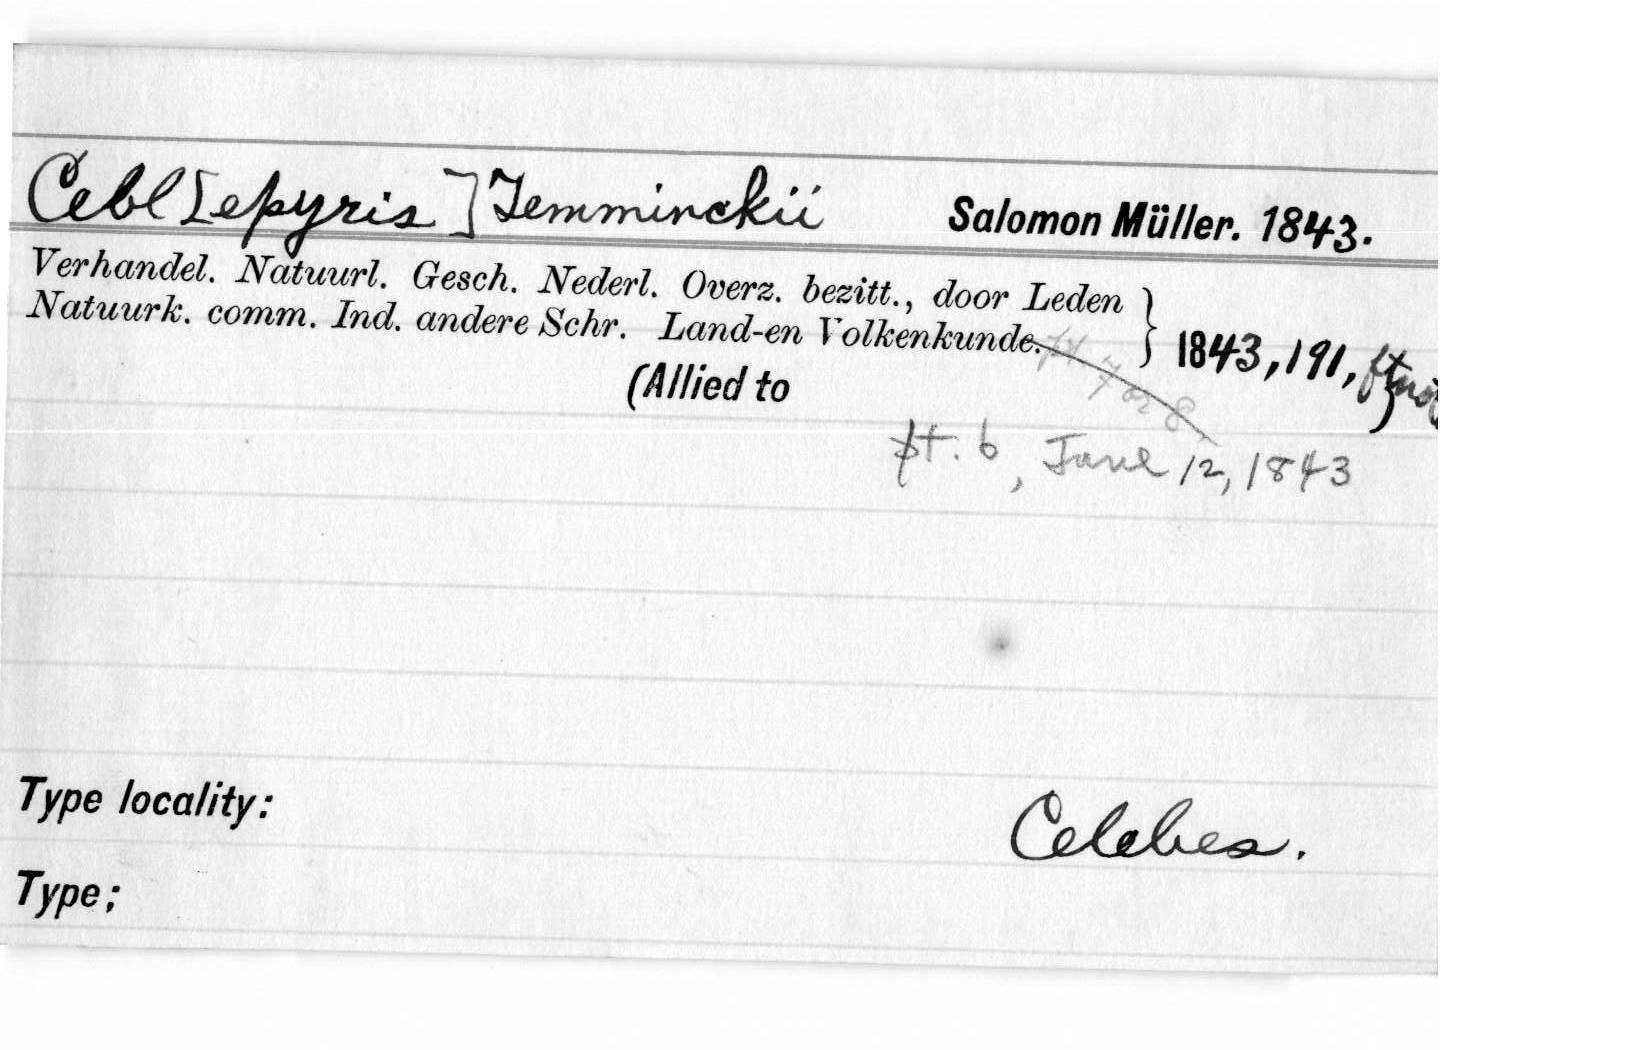 Cebl[epyris] Temminckii Salomon Müller. 1843.
Verhandel. Natuurl. Gesch. Nederl. Overz. bezitt., door Leden
Natuurk. comm. Ind. andere Schr. Land-en Volkenkunde. } 1843, 191,
(Allied to )
pt 7 or 8
pt. 6, June 12, 1843
Type locality: Celebes.
Type;